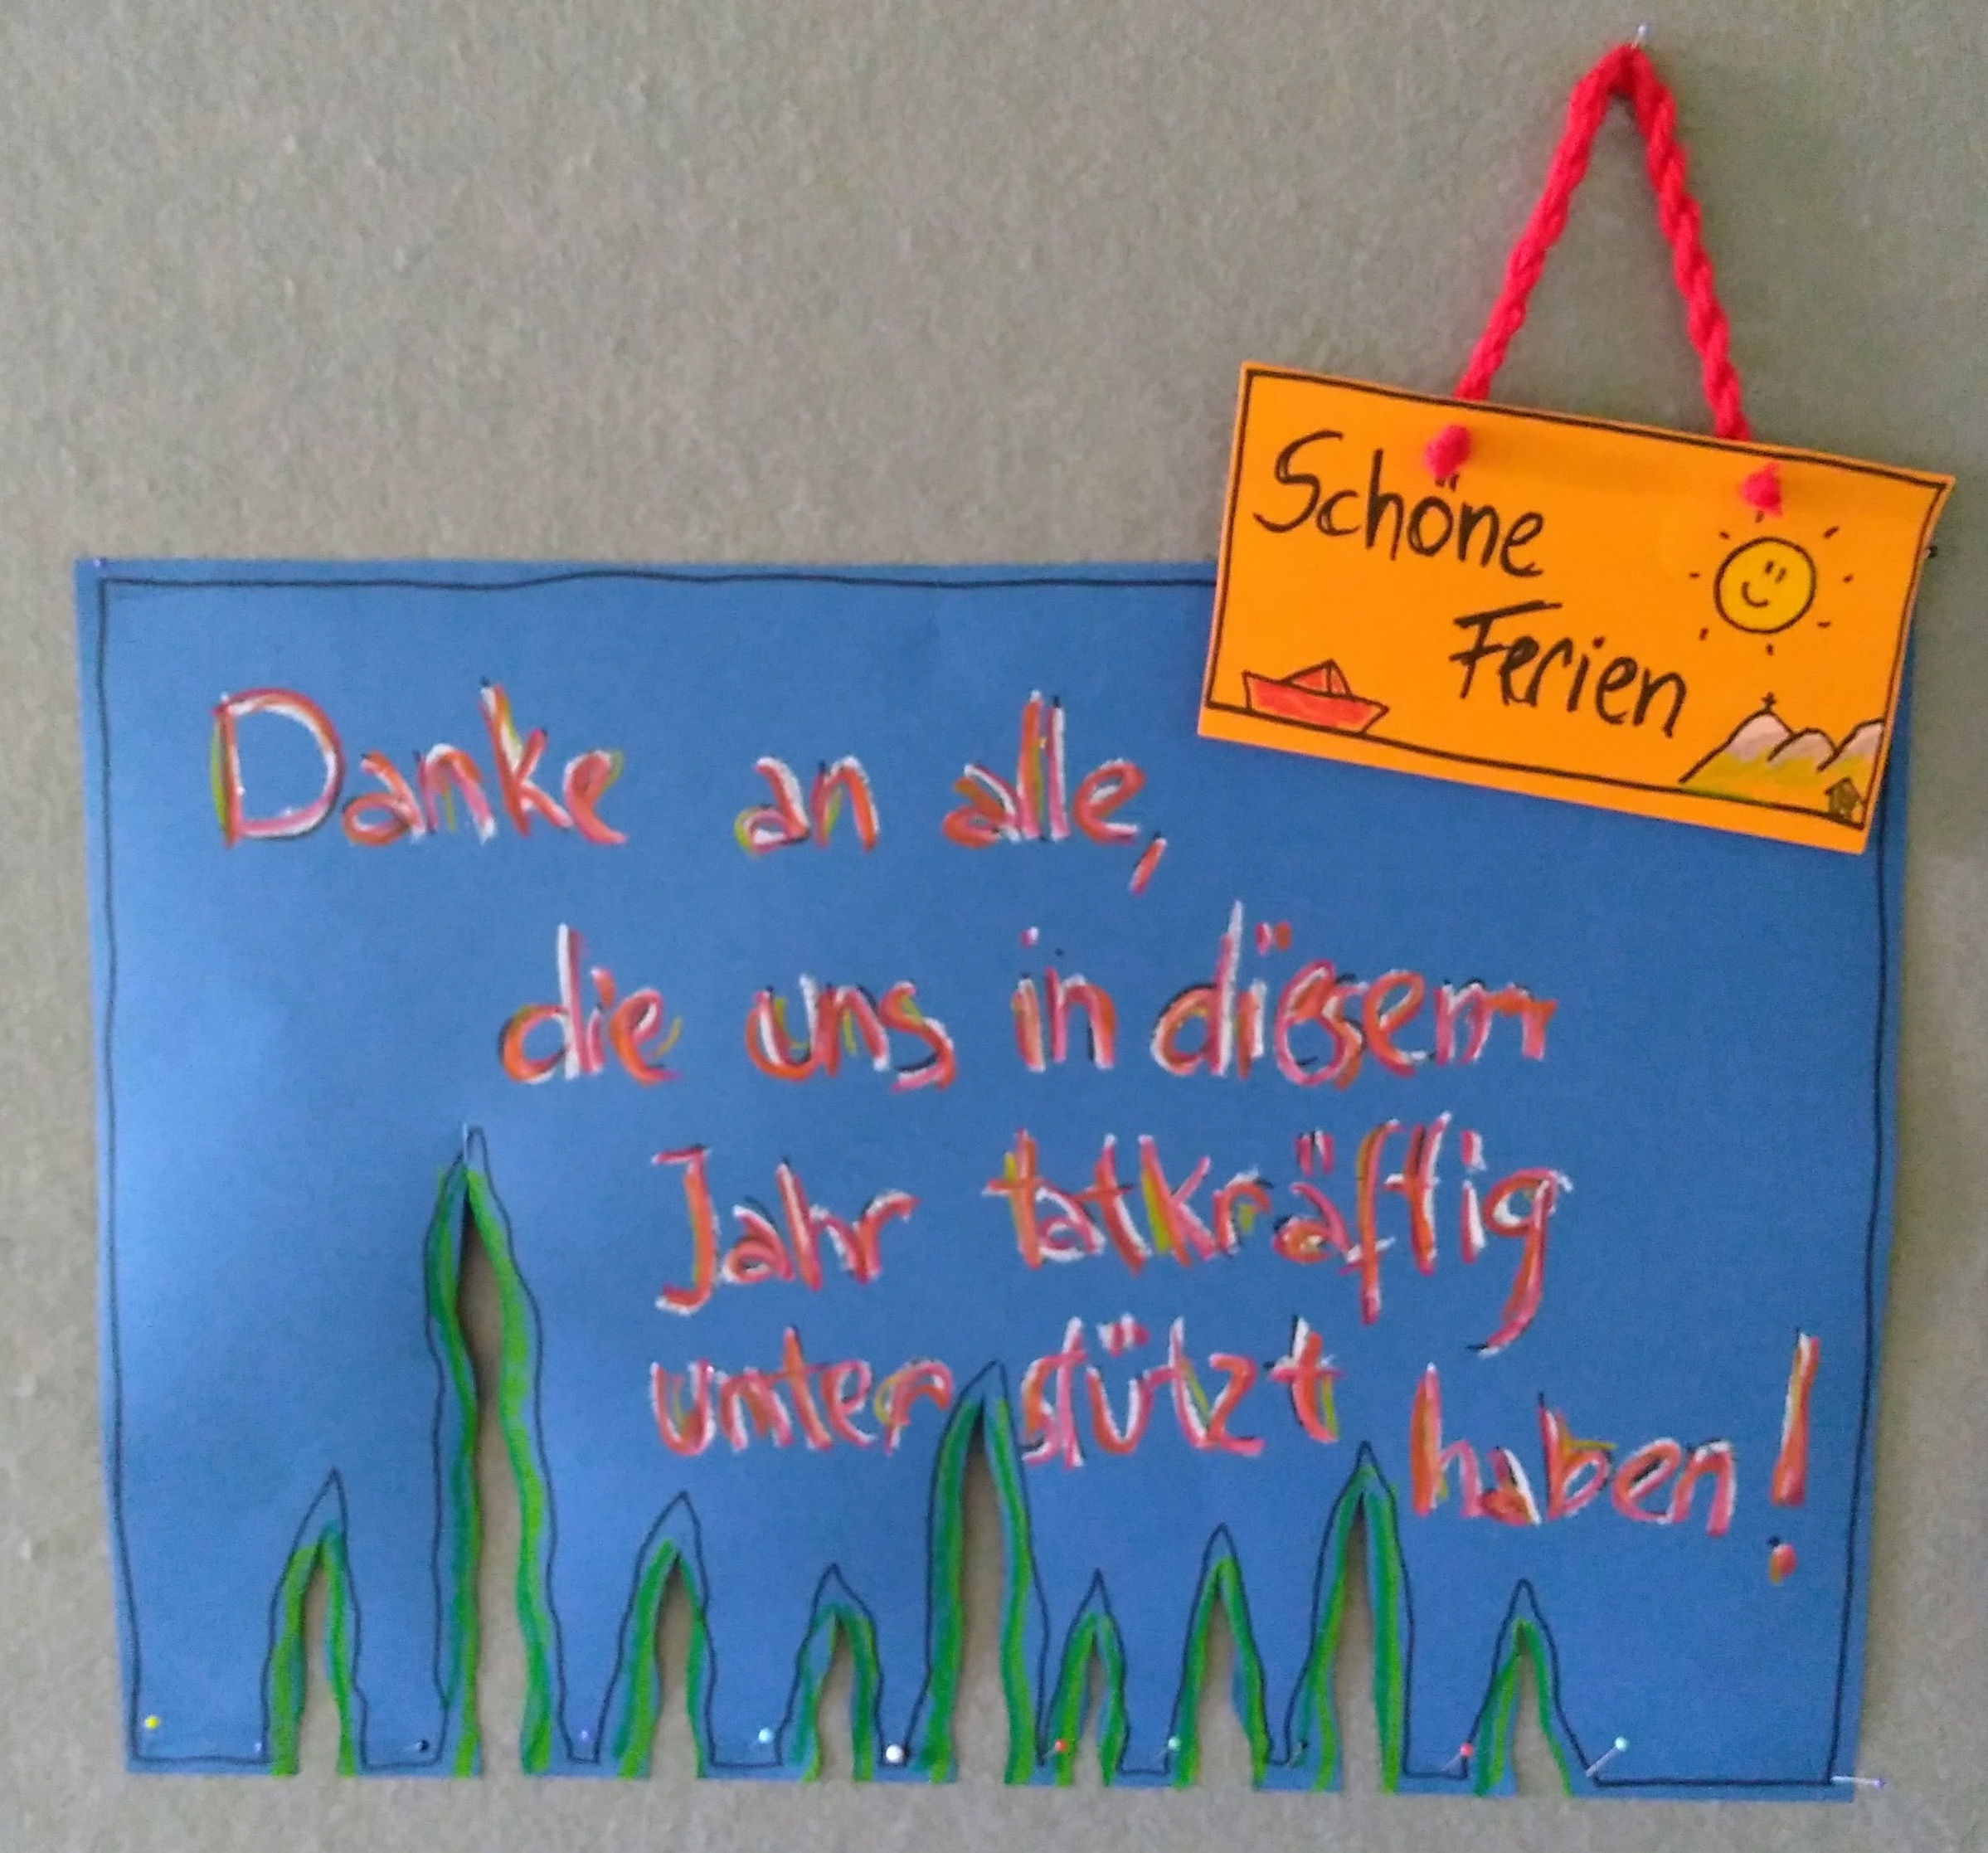 Schöne
Ferien
Danke an alle,
die uns in diesem
Jahr tatkräftig
unterstützt
haben!